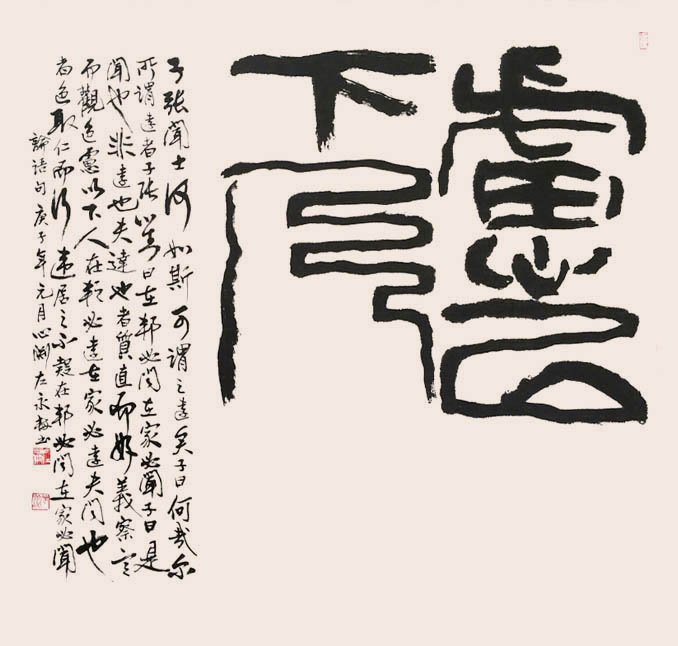 慮以
下人
子張聞士何如斯可謂之達矣子曰何哉爾
所謂達者子張對曰在邦必聞在家必聞子曰是
聞也非達也夫達也者質直而好義察言
而觀色慮以下人在邦必達在家必達夫聞也
者色取仁而行違居之不疑在邦必聞在家必聞
論語句庚子年元月心左永書